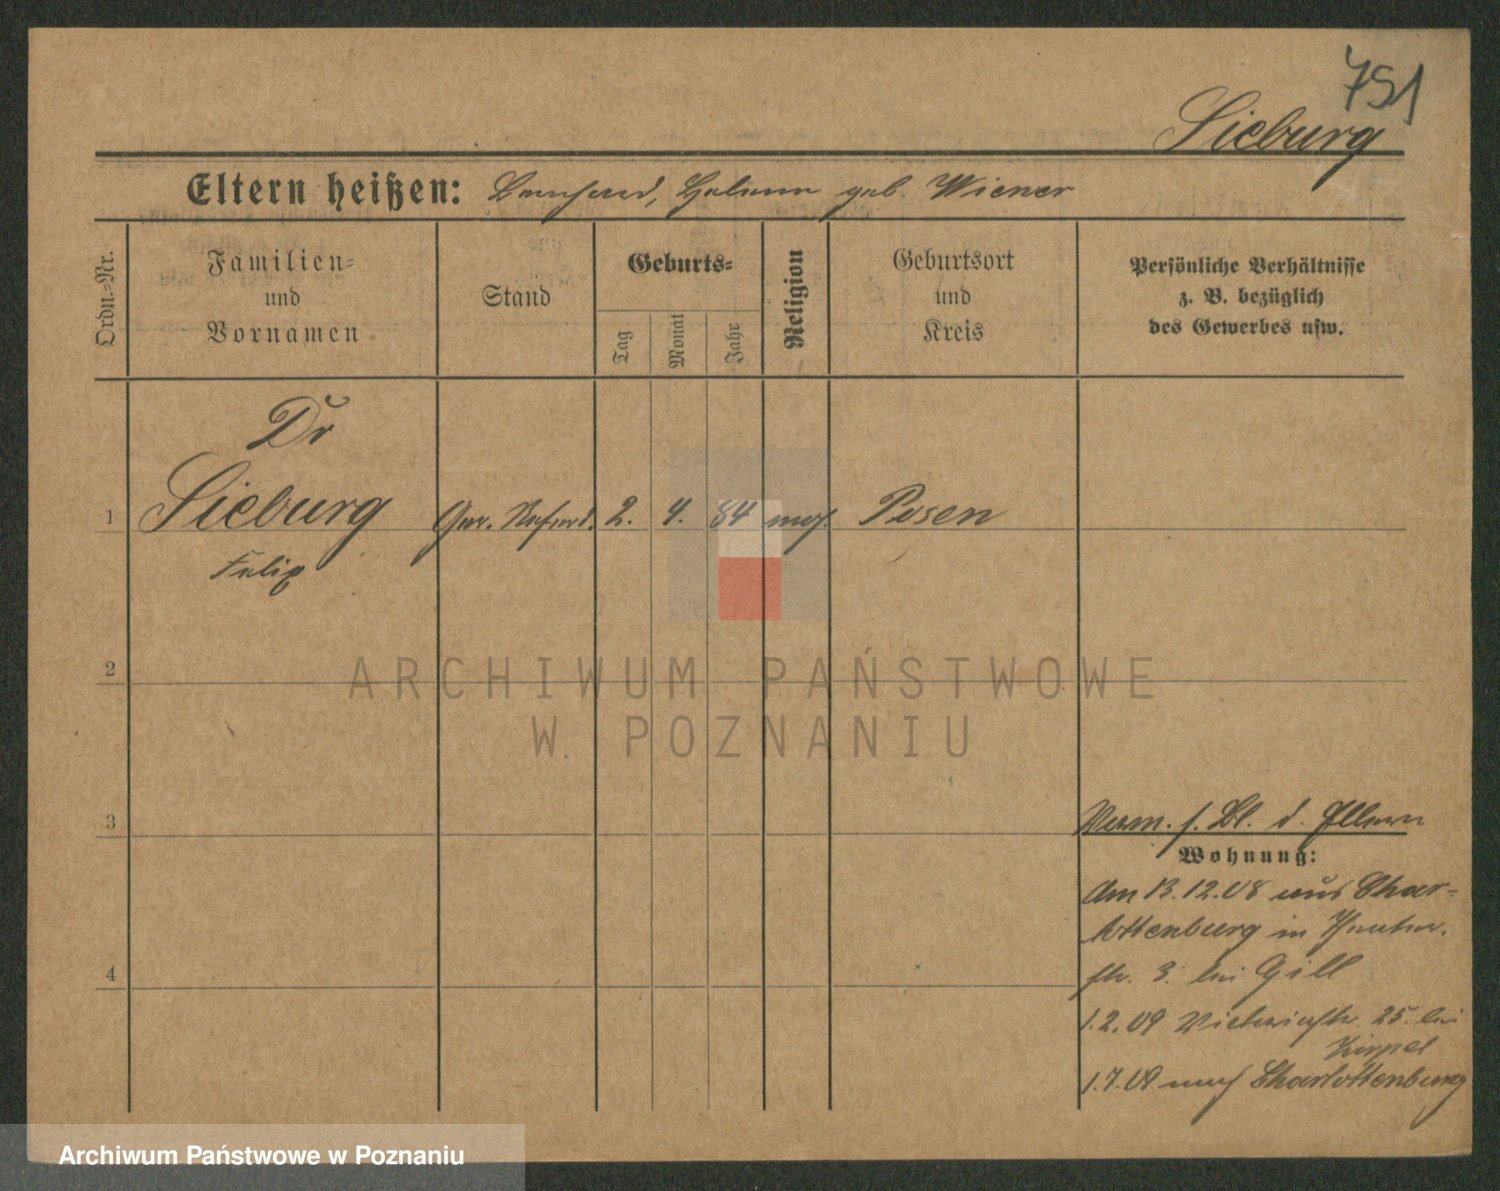 751
Sieburg
Eltern heißen: Bernhard, Helene geb. Wiener
Ordn.-Nr.
Familien-
und
Vornamen
Stand
Geburts-
Tag
Monat
Jahr
Religion
Geburtsort
und
Kreis
Persönliche Verhältnisse
z. B. bezüglich
des Gewerbes usw.
Dr
1 Sieburg Ger. Referd. 2. 4. 84 mos. Posen
Felix
2
ARCHIWUM PAŃSTWOWE
W POZNANIU
3
Verm. s. Bl. d. Eltern
Wohnung:
Am 13.12.08 aus Char-
lottenburg in
4
str. 3. bei Gill
1.2.09 Victoriastr. 25. bei
1.7.09 nach Charlottenburg
Archiwum Państwowe w Poznaniu